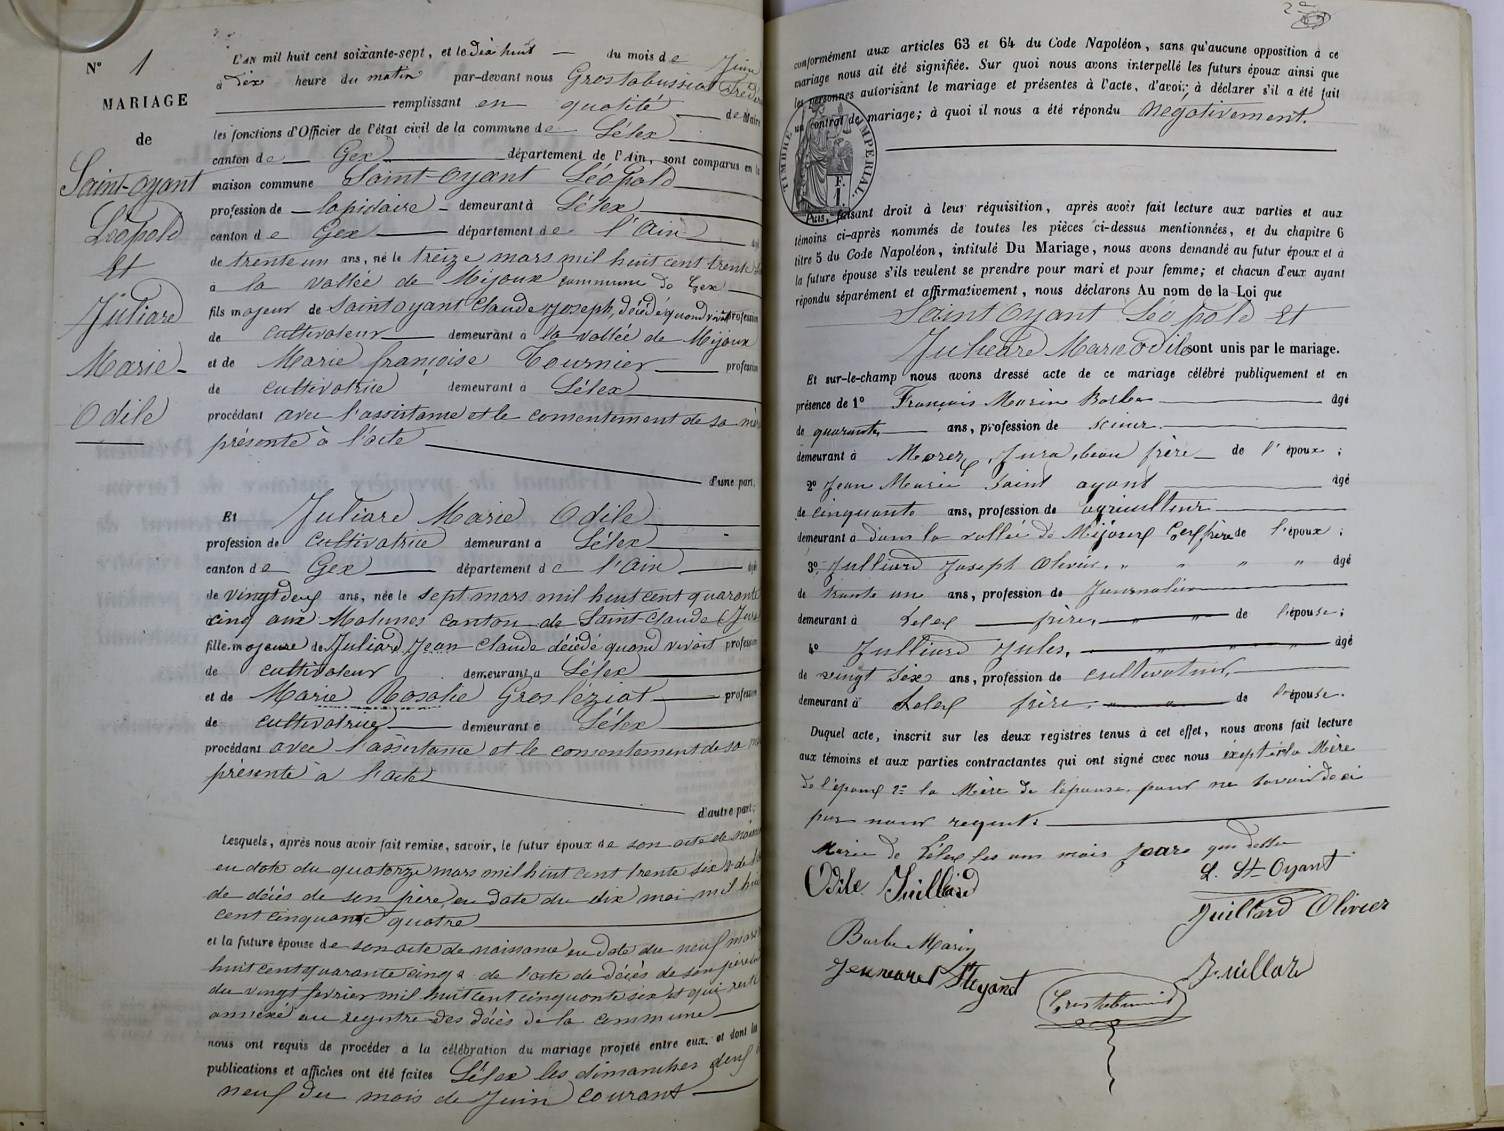 N° 1
MARIAGE
de
Saint-Oyant
Léopold
Et
Juliard
Marie
Odile
L'AN mil huit cent soixante-sept, et le Dix huit du mois de Juin
à Dix heure du matin par-devant nous Grostabussiat Fréd
remplissant en qualité de Maire
les fonctions d'Officier de l'état civil de la commune de Lélex
canton de Gex département de l'Ain, sont comparus en la
maison commune Saint-Oyant Léopold
profession de lapidaire demeurant à Lélex
canton de Gex département de l'Ain âgé
de trente un ans, né le treize mars mil huit cent trente
à la vallée de Mijoux commune de Gex
fils majeur de Saint oyant Claude Joseph, décédé quand vivait profession
de cultivateur demeurant à la vallée de Mijoux
et de Marie françoise Tournier profession
de cultivatrice demeurant à Lélex
procédant avec l'assistance et le consentement de sa mère
présente à l'acte
d'une part,
Et Juliard Marie Odile
profession de cultivatrice demeurant à Lélex
canton de Gex département de l'Ain âgée
de vingt deux ans, née le sept mars mil huit cent quarante
cinq aux Molunes canton de Saint Claude (Jura
fille majeure de Juliard Jean Claude décédé quand vivait profession
de cultivateur demeurant à Lélex
et de Marie Rosalie Grosléziat profession
de cultivatrice demeurant à Lélex
procédant avec l'assistance et le consentement de sa
présente à l'acte
d'autre part,
Lesquels, après nous avoir fait remise, savoir, le futur époux de son acte de
en date du quatorze mars mil huit cent trente six & de
de décès de son père en date du dix mai mil hui
cent cinquante quatre
et la future épouse de son acte de naissance en date du neuf mars
huit cent quarante cinq & de l'acte de décès de son père
du vingt fevrier mil huit cent cinquante six et qui
annexé au registre des décès de la commune
nous ont requis de procéder à la célébration du mariage projeté entre eux, et dont les
publications et affiches ont été faites Lélex les dimanches deux
neuf du mois de Juin courant
conformément aux articles 63 et 64 du Code Napoléon, sans qu'aucune opposition à ce
mariage nous ait été signifiée. Sur quoi nous avons interpellé les futurs époux ainsi que
les personnes autorisant le mariage et présentes à l'acte, d'avoir à déclarer s'il a été fait
un contrat de mariage; à quoi il nous a été répondu négativement.
TIMBRE IMPÉRIAL
1 F.
Puis, faisant droit à leur réquisition, après avoir fait lecture aux parties et aux
témoins ci-après nommés de toutes les pièces ci-dessus mentionnées, et du chapitre 6
titre 5 du Code Napoléon, intitulé Du Mariage, nous avons demandé au futur époux et à
la future épouse s'ils veulent se prendre pour mari et pour femme; et chacun d'eux ayant
répondu séparément et affirmativement, nous déclarons Au nom de la Loi que
Saint Oyant Léopold et
Julieard Marie Odile sont unis par le mariage.
Et sur-le-champ nous avons dressé acte de ce mariage célébré publiquement et en
présence de 1° François Marin Barbe âgé
de quarante ans, profession de
demeurant à Morez, Jura, beau frère de l'époux;
2° Jean Marie Saint oyant âgé
de cinquante ans, profession de agriculteur
demeurant à dans la vallée de Mijoux Gex, frère de l'époux;
3° Julliard Joseph Olivier, âgé
de trente un ans, profession de Journalier
demeurant à Lelex frère, de l'épouse;
4° Julliard Jules, âgé
de vingt six ans, profession de cultivateur,
demeurant à Lelex frère, de l'épouse.
Duquel acte, inscrit sur les deux registres tenus à cet effet, nous avons fait lecture
aux témoins et aux parties contractantes qui ont signé avec nous la Mère
de l'époux 2° la Mère de l'épouse, pour ne savoir de ce
par nous requis
Mairie de Lélex les ans mois jours que dessus
Odile Juillard L. St Oyant
Juillard Olivier
Barbe Marin
Jeanmarie St Oyant Juillard